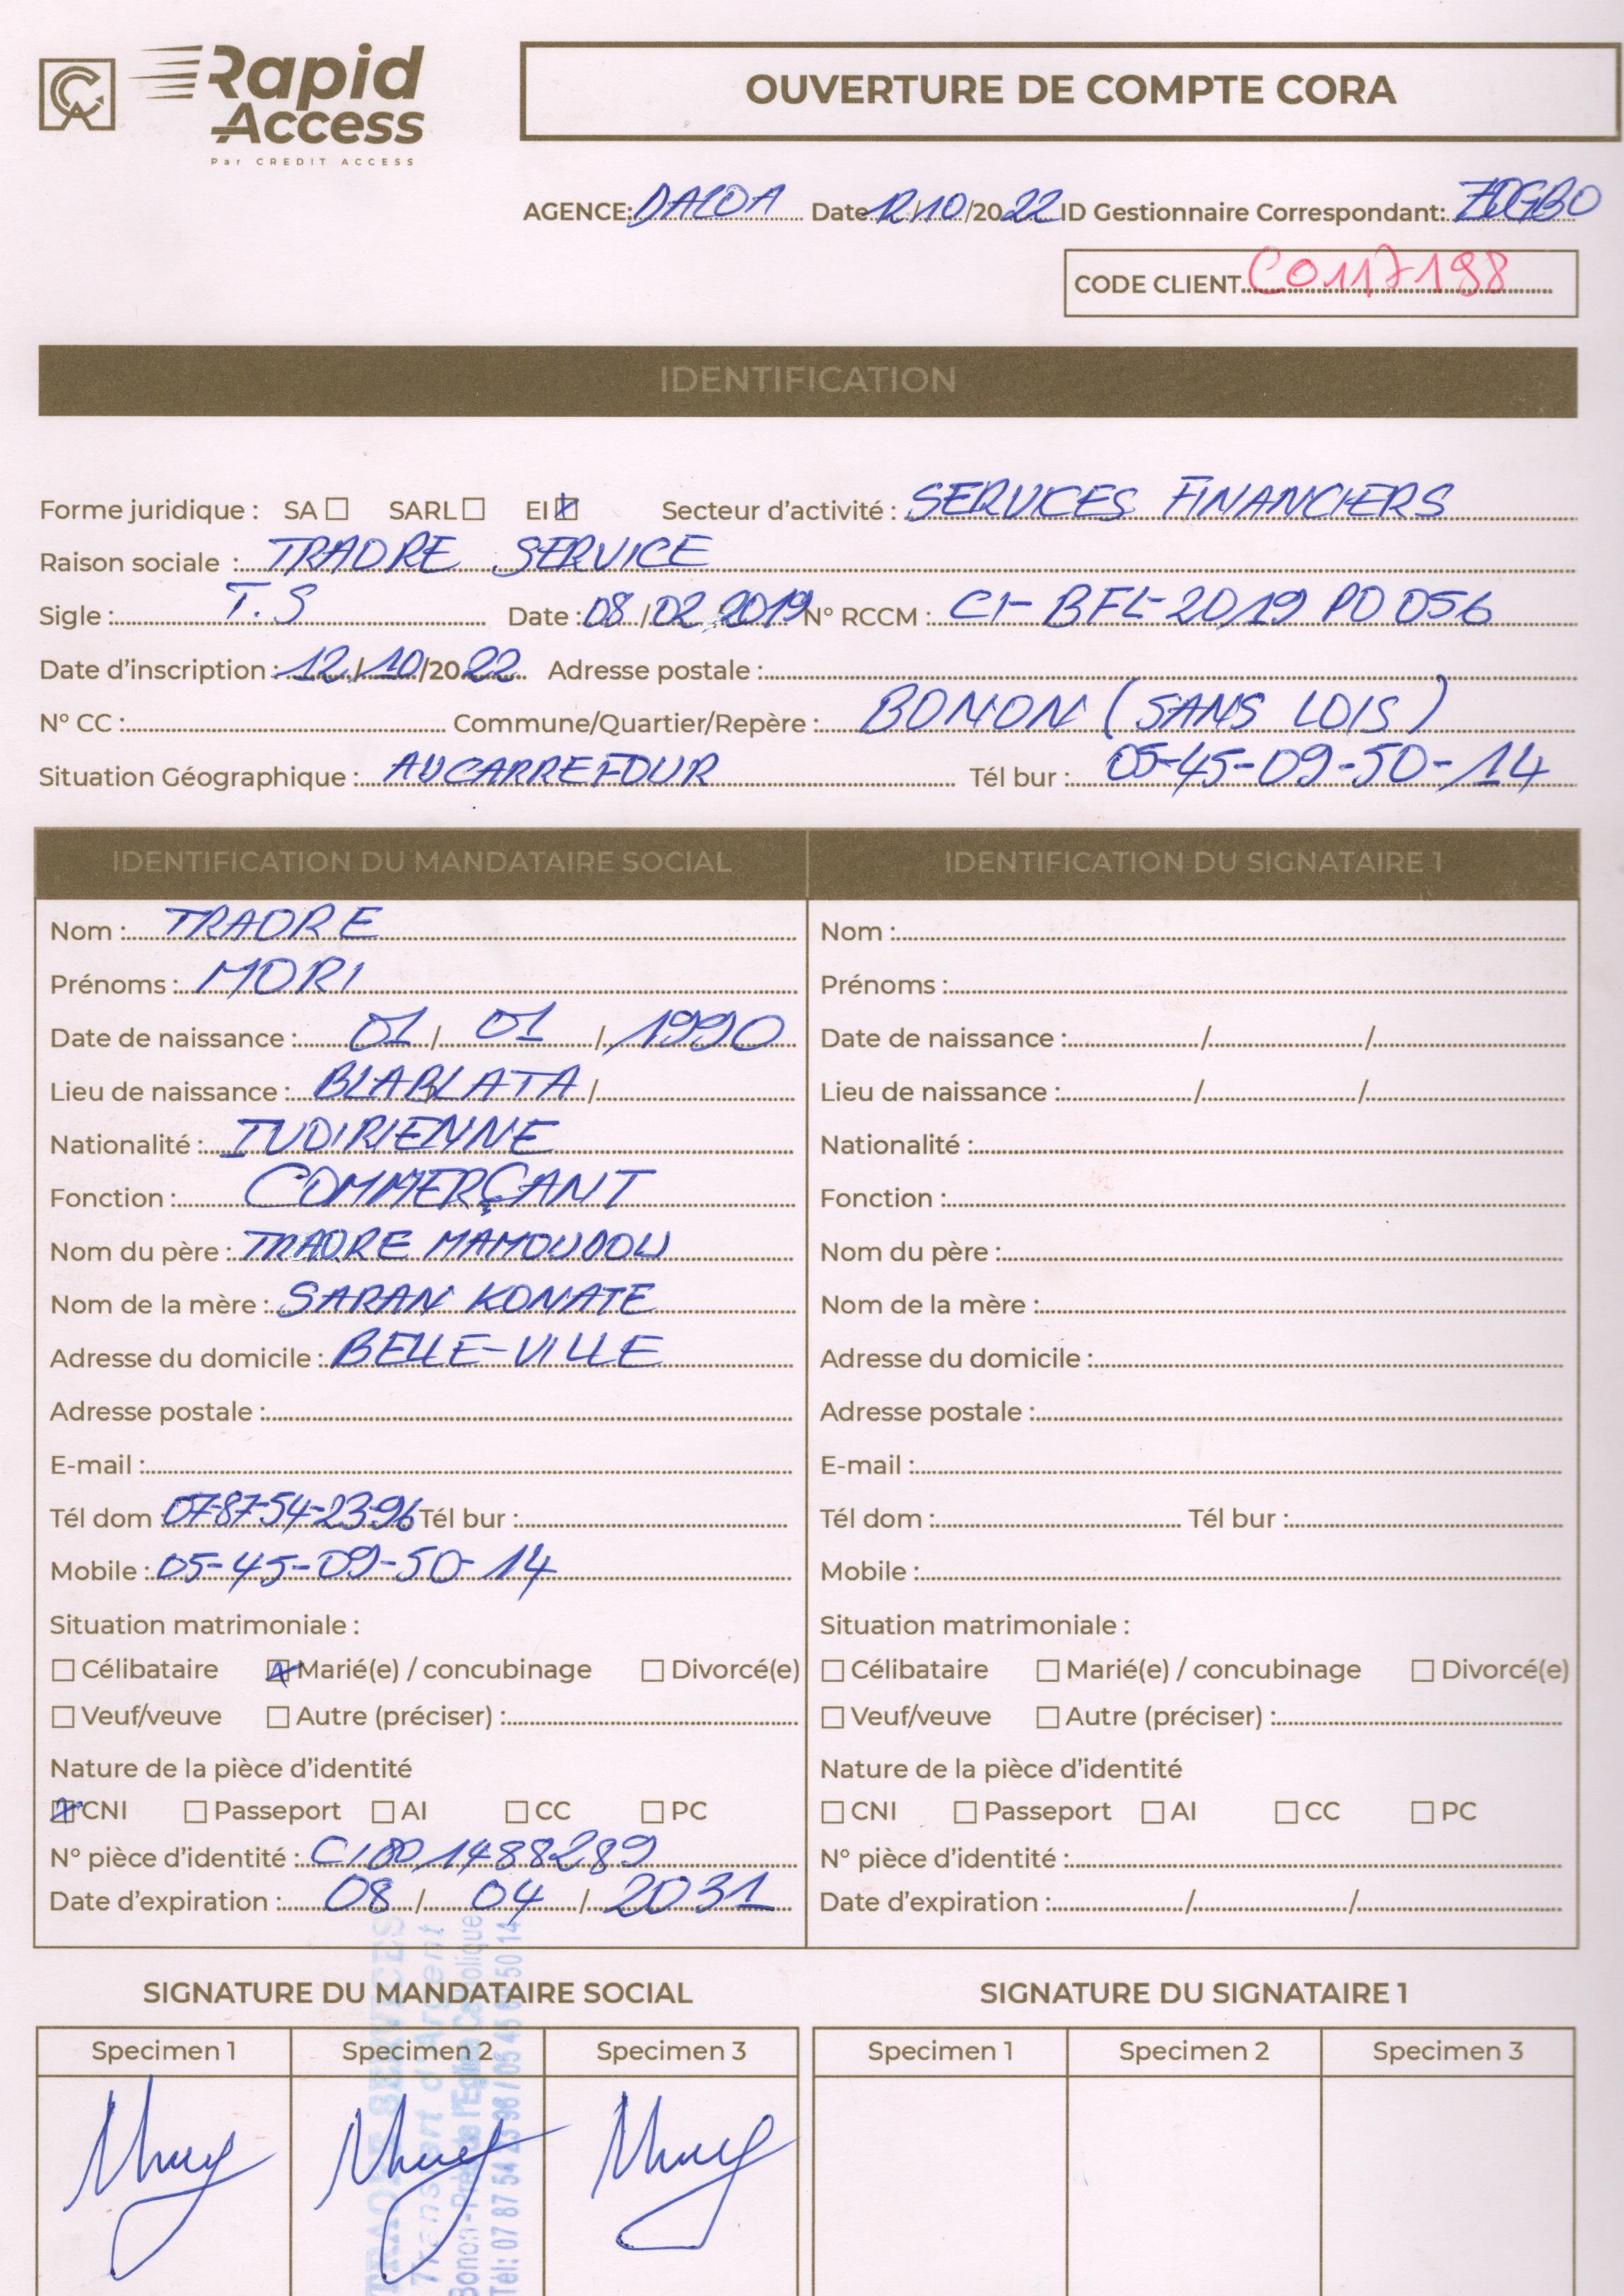 Rapid
Access
Par CREDIT ACCESS
OUVERTURE DE COMPTE CORA
AGENCE: DALOA Date 12/10/2022 ID Gestionnaire Correspondant: ZOGBO
CODE CLIENT C0117198
IDENTIFICATION
Forme juridique : SA SARL EI Secteur d'activité : SERVICES FINANCIERS
Raison sociale : TRAORE SERVICE
Sigle : T.S Date : 08/02/2019 N° RCCM : CI-BFL-2019 PO 056
Date d'inscription : 12/10/2022 Adresse postale :
N° CC : Commune/Quartier/Repère : BONON (SANS LOIS)
Situation Géographique : AUCARREFOUR Tél bur : 05-45-09-50-14
IDENTIFICATION DU MANDATAIRE SOCIAL
Nom : TRAORE
Prénoms : MORI
Date de naissance : 01/01/1990
Lieu de naissance : BLABLATA /
Nationalité : IVOIRIENNE
Fonction : COMMERÇANT
Nom du père : TRAORE MAMOUDOU
Nom de la mère : SARAN KONATE
Adresse du domicile : BELLE-VILLE
Adresse postale :
E-mail :
Tél dom : 07-87-54-23-96 Tél bur :
Mobile : 05-45-09-50-14
Situation matrimoniale :
Célibataire Marié(e) / concubinage Divorcé(e)
Veuf/veuve Autre (préciser) :
Nature de la pièce d'identité
CNI Passeport AI CC PC
N° pièce d'identité : CI001488289
Date d'expiration : 08/04/2031
IDENTIFICATION DU SIGNATAIRE 1
Nom :
Prénoms :
Date de naissance : / /
Lieu de naissance : / /
Nationalité :
Fonction :
Nom du père :
Nom de la mère :
Adresse du domicile :
Adresse postale :
E-mail :
Tél dom : Tél bur :
Mobile :
Situation matrimoniale :
Célibataire Marié(e) / concubinage Divorcé(e)
Veuf/veuve Autre (préciser) :
Nature de la pièce d'identité
CNI Passeport AI CC PC
N° pièce d'identité :
Date d'expiration : / /
SIGNATURE DU MANDATAIRE SOCIAL
Specimen 1 Specimen 2 Specimen 3
SIGNATURE DU SIGNATAIRE 1
Specimen 1 Specimen 2 Specimen 3
TRAORE SERVICES
Transfert d'Argent
Bonon - Près de l'Eglise Catholique
Tél: 07 87 54 23 96 / 05 45 09 50 14